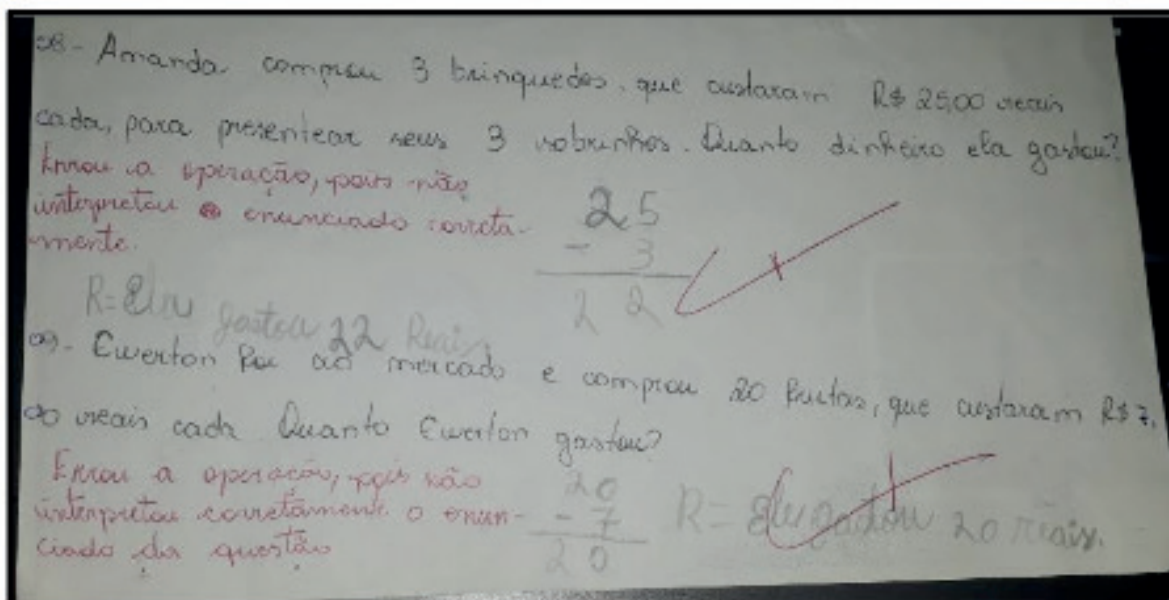 08- Amanda comprou 3 brinquedos, que custaram R$ 25,00 reais
cada, para presentear seus 3 sobrinhos. Quanto dinheiro ela gastou?
Errou a operação, pois não
interpretou o enunciado correta-
mente.
25
- 3
22
R= Elu gastou 22 Reais.
09- Ewerton foi ao mercado e comprou 20 frutas, que custaram R$ 7,
00 reais cada Quanto Ewerton gastou?
Errou a operação, pois não
interpretou corretamente o enun-
ciado da questão
20
- 7
20
R= Elu gastou 20 reais.